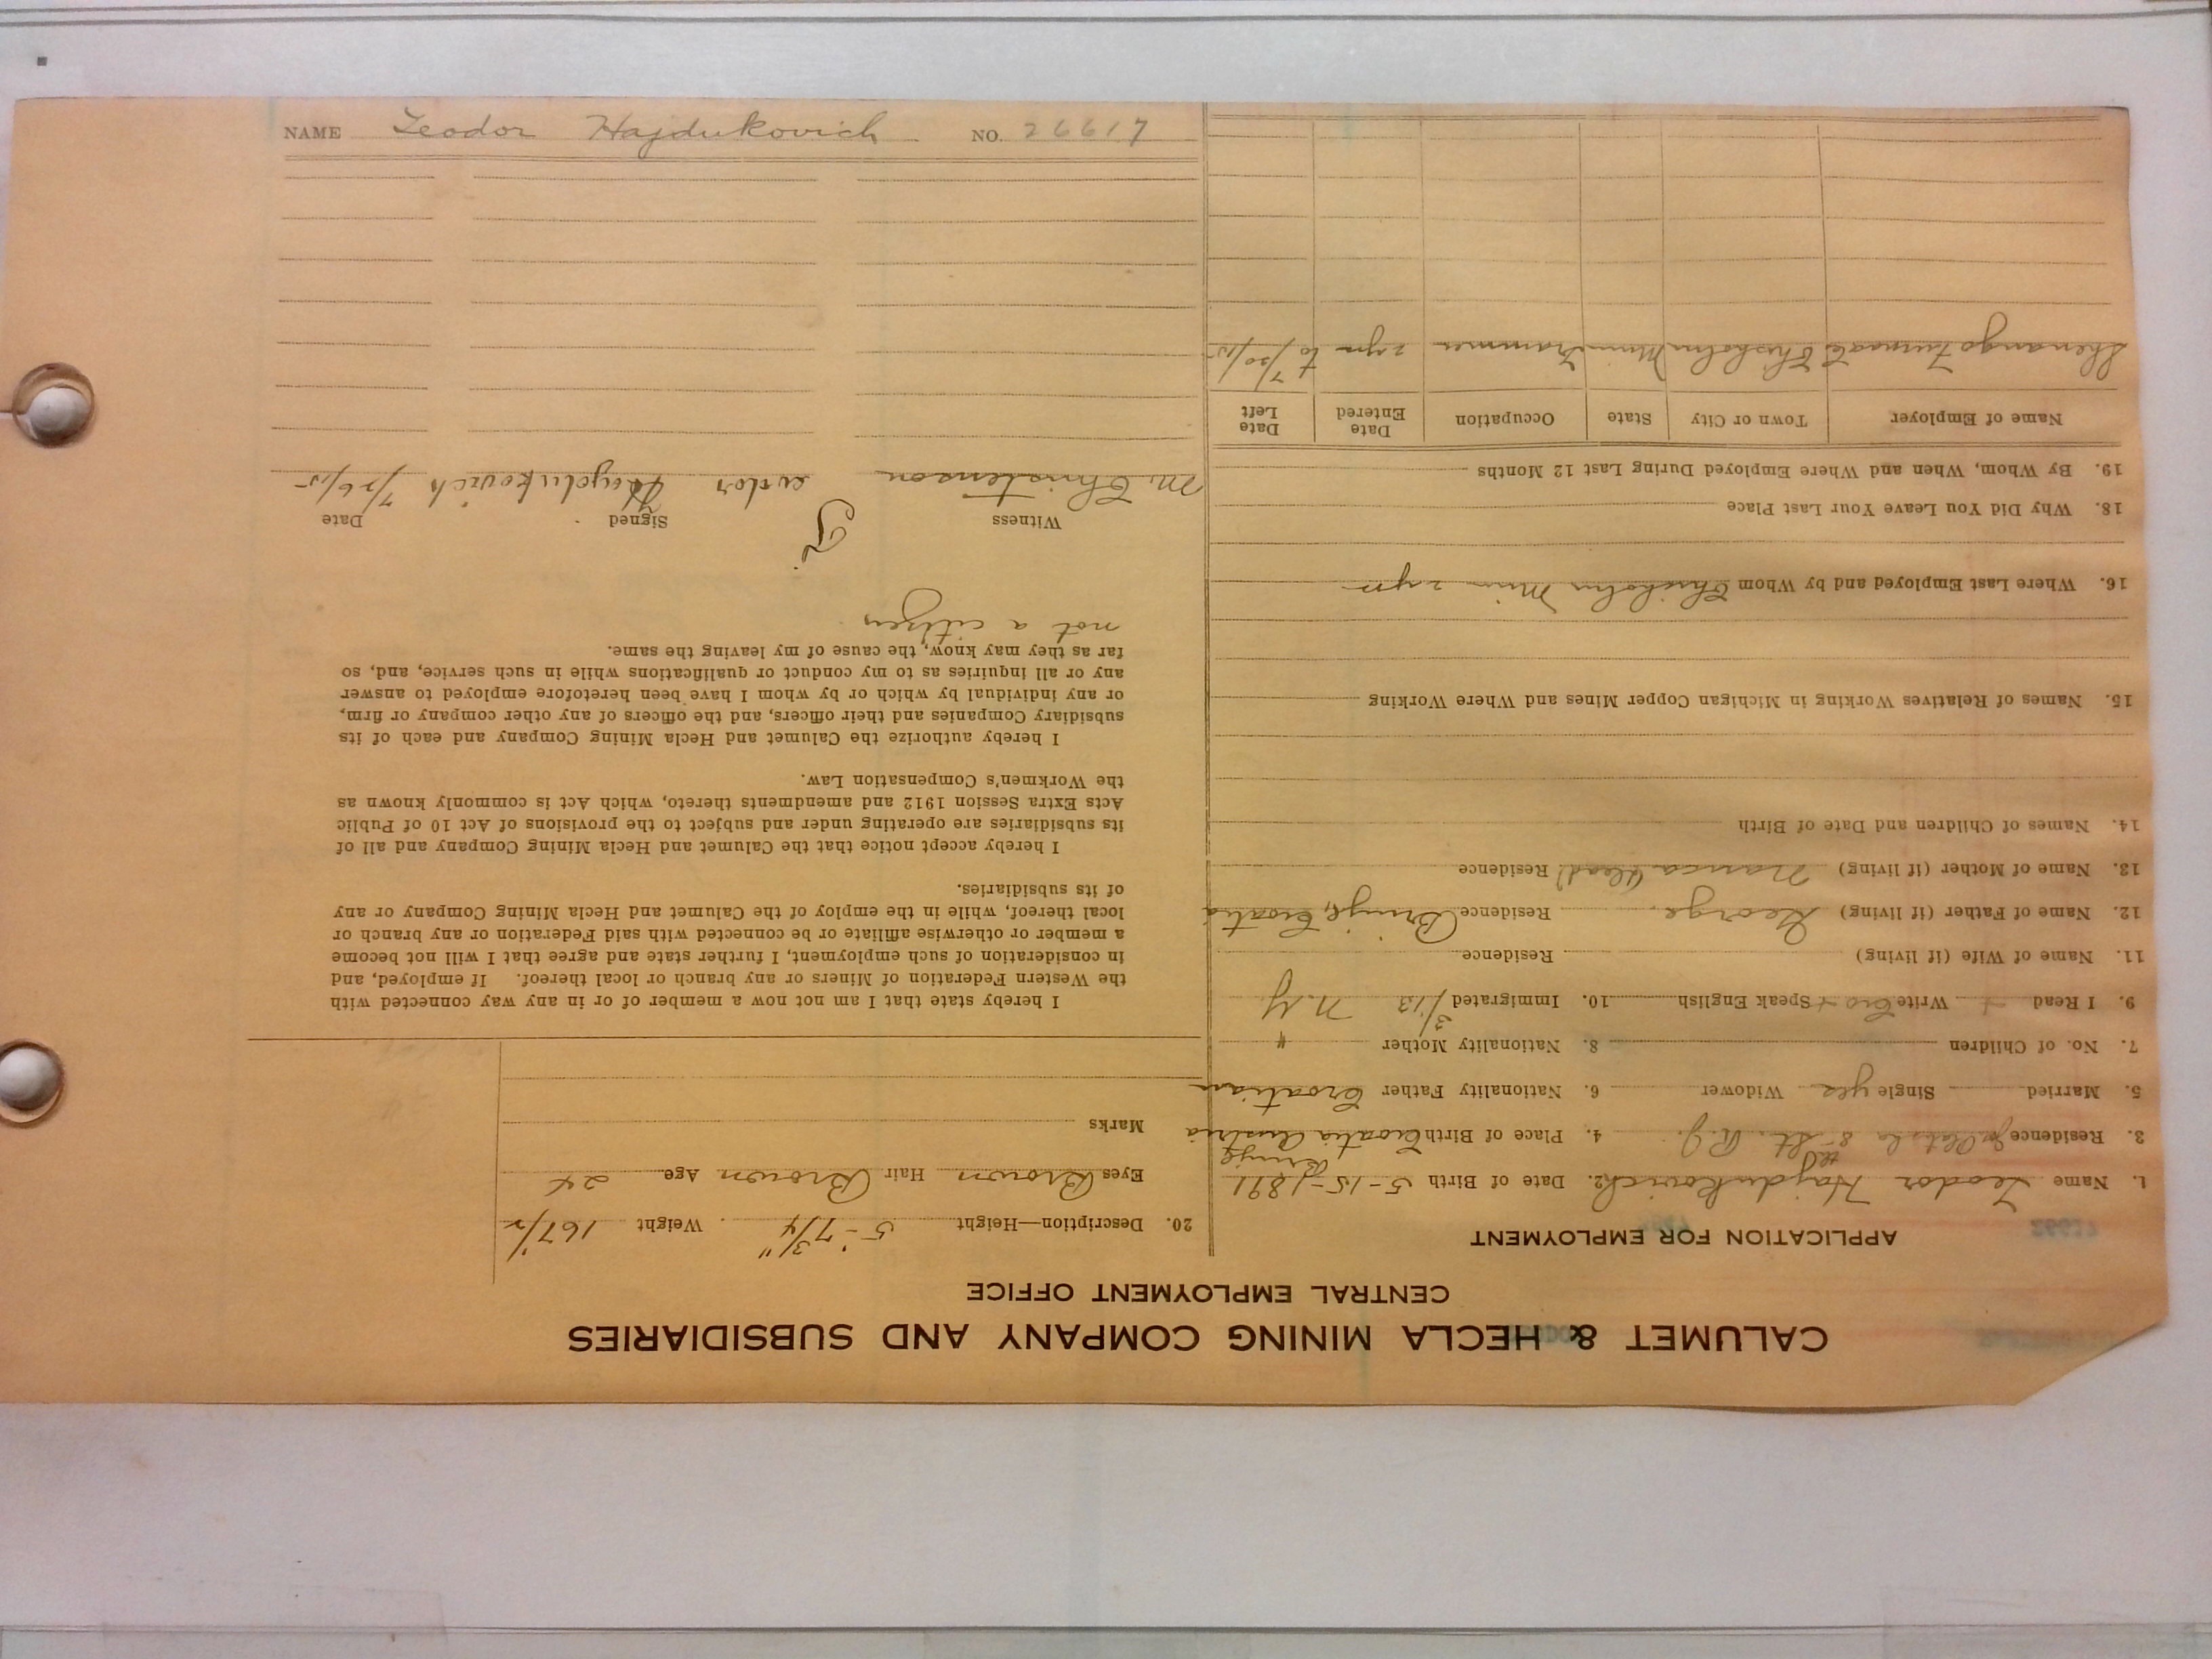 CALUMET & HECLA MINING COMPANY AND SUBSIDIARIES
CENTRAL EMPLOYMENT OFFICE
APPLICATION FOR EMPLOYMENT
1. Name Teodor Hajdukovich 2. Date of Birth 5-15-1891
3. Residence 8th St. R.J. 4. Place of Birth Croatia Austria
5. Married Single yes Widower 6. Nationality Father Croatian
7. No. of Children 8. Nationality Mother "
9. I Read + Write Cro + Speak English 10. Immigrated 3/13 N.Y.
11. Name of Wife (if living) Residence
12. Name of Father (if living) George Residence Brinje, Croatia
13. Name of Mother (if living) (dead) Residence
14. Names of Children and Date of Birth
15. Names of Relatives Working in Michigan Copper Mines and Where Working
16. Where Last Employed and by Whom Chisholm Minn 2 yrs
18. Why Did You Leave Your Last Place
19. By Whom, When and Where Employed During Last 12 Months
Name of Employer Town or City State Occupation Date Entered Date Left
Shenango Furnace Co Chisholm Minn Trammer 2 yrs to 7/20/15
20. Description—Height 5'-7 3/4" Weight 167 1/2
Eyes Brown Hair Brown Age 24
Marks
I hereby state that I am not now a member of or in any way connected with
the Western Federation of Miners or any branch or local thereof. If employed, and
in consideration of such employment, I further state and agree that I will not become
a member or otherwise affiliate or be connected with said Federation or any branch or
local thereof, while in the employ of the Calumet and Hecla Mining Company or any
of its subsidiaries.
I hereby accept notice that the Calumet and Hecla Mining Company and all of
its subsidiaries are operating under and subject to the provisions of Act 10 of Public
Acts Extra Session 1912 and amendments thereto, which Act is commonly known as
the Workmen's Compensation Law.
I hereby authorize the Calumet and Hecla Mining Company and each of its
subsidiary Companies and their officers, and the officers of any other company or firm,
or any individual by which or by whom I have been heretofore employed to answer
any or all inquiries as to my conduct or qualifications while in such service, and, so
far as they may know, the cause of my leaving the same.
not a citizen
Witness Signed Date
M. Christenson Teodor Hajdukovich 7/26/15
NAME Teodor Hajdukovich NO. 26617